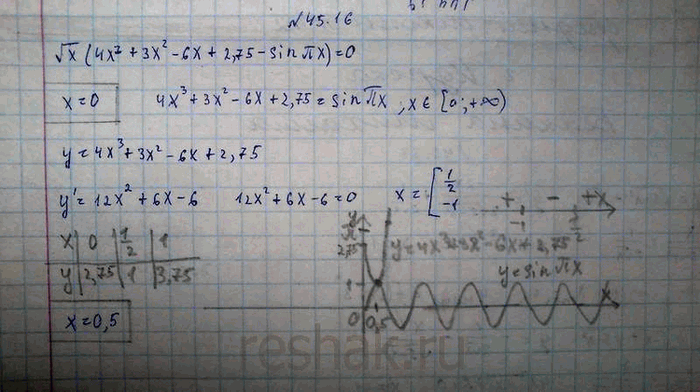 №45.16
√x (4x² + 3x² - 6x + 2,75 - sin πx) = 0
x = 0 4x³ + 3x² - 6x + 2,75 = sin πx, x ∈ [0; +∞)
y = 4x³ + 3x² - 6x + 2,75
y' = 12x² + 6x - 6 12x² + 6x - 6 = 0 x = [ 1/2 -1
+ - + x
-1 1/2
x | 0 | 1/2 | 1
y | 2,75 | 1 | 3,75
x = 0,5
y
2,75
1
0 0,5 x
y = 4x³ + 3x² - 6x + 2,75
y = sin πx
reshak.ru